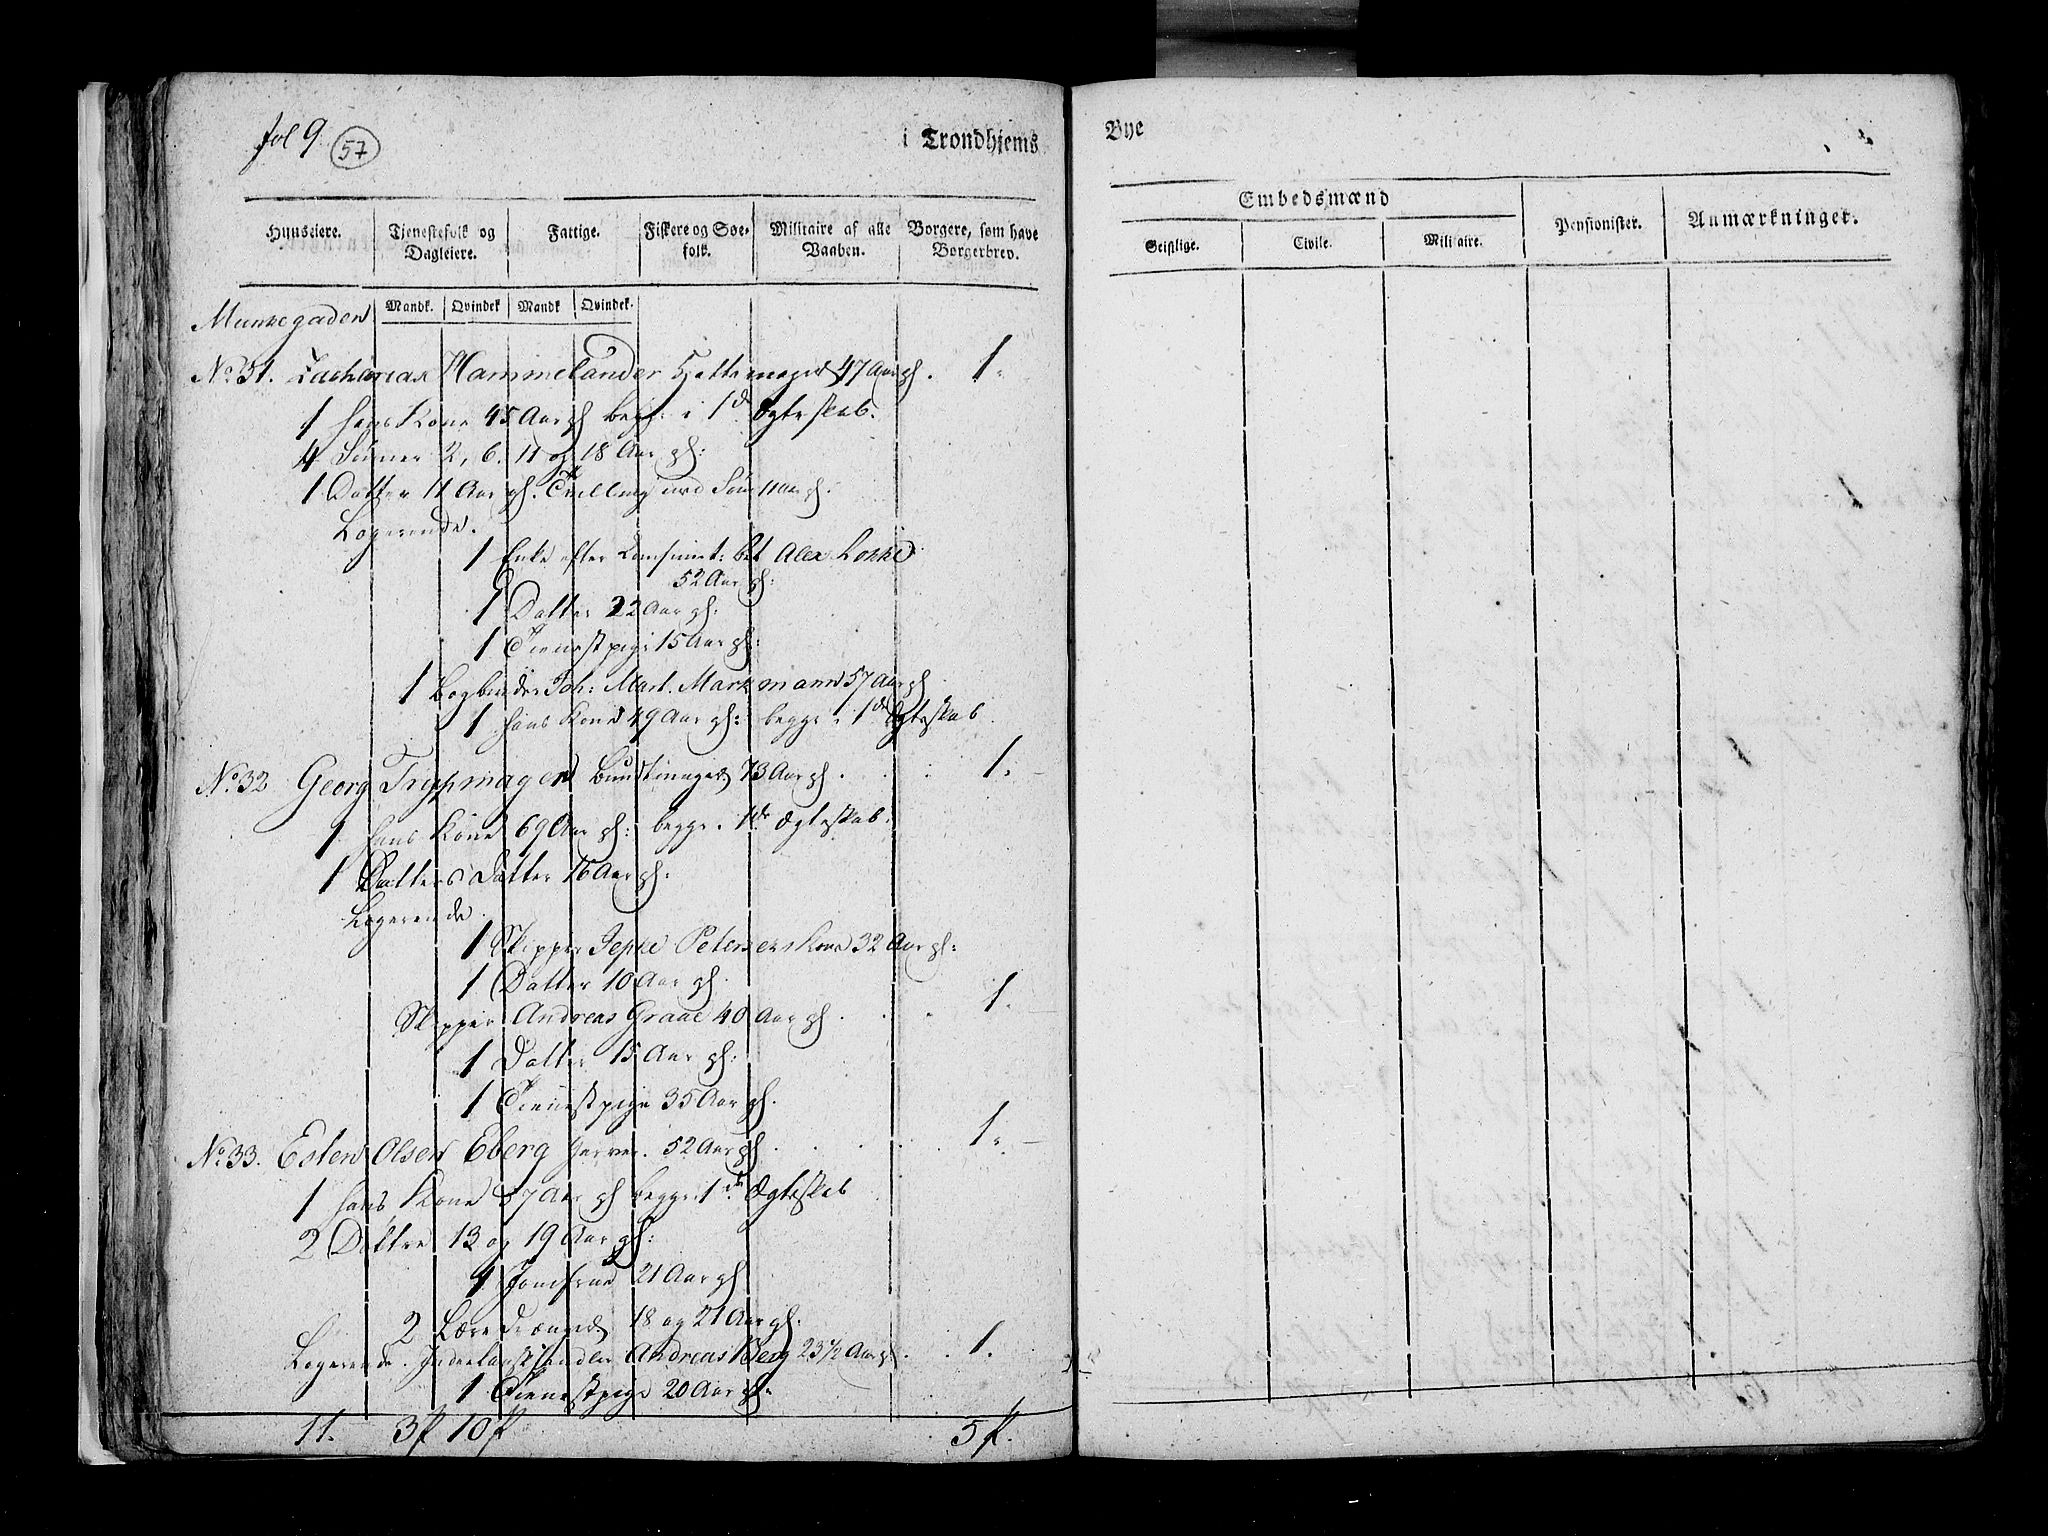 fol 9. 57
i Trondhjems Bye
Huuseiere. Tjenestefolk og Dagleiere. Fattige. Fiskere og Søe-folk. Militaire af alle Vaaben. Borgere, som have Borgerbrev.
Embedsmænd Pensionister. Anmærkninger.
Geistlige. Civile. Militaire.
Mandk. Qvindek Mandk Qvindek.
Munkegaden
No. 31. Zacharias Hammelander Hattemager 47 Aar gl. 1.
1 hans Kone 45 Aar gl begge i 1de Ægteskab.
4 Sønner 2, 6, 11 og 18 Aar gl:
1 Datter 11 Aar gl. Tvilling med Søn 11 Aar gl.
Logerende.
1 Enke efter Consumt: bet Alex Lokke
52 Aar gl:
1 Datter 22 Aar gl:
1 Tienestpige 15 Aar gl:
1 Bogbinder Joh: Mart. Markmann 57 Aar gl
1 hans Kone 49 Aar gl: begge i 1de Ægteskab
No. 32 Georg Trypmager Buntmager 73 Aar gl. 1.
1 hans Kone 69 Aar gl: begge i 1de Ægteskab.
1 Datters Datter 16 Aar gl:
Logerende.
1 Skipper Jepke Petersens Kone 32 Aar gl:
1 Datter 10 Aar gl.
Skipper Andreas Graae 40 Aar gl. 1.
1 Datter 15 Aar gl:
1 Tienestpige 35 Aar gl.
No. 33. Esten Olsen Eberg Garver. 52 Aar gl. 1.
1 hans Kone 57 Aar gl begge i 1de Ægteskab
2 Døttre 13 og 19 Aar gl:
1 Jomfrue 21 Aar gl
2 Læredrænge 18 og 21 Aar gl.
Logerende. Inderlandskhandler Andreas Berg 23 1/2 Aar gl. 1.
1 Tienestpige 20 Aar gl:
11. 3 10 5